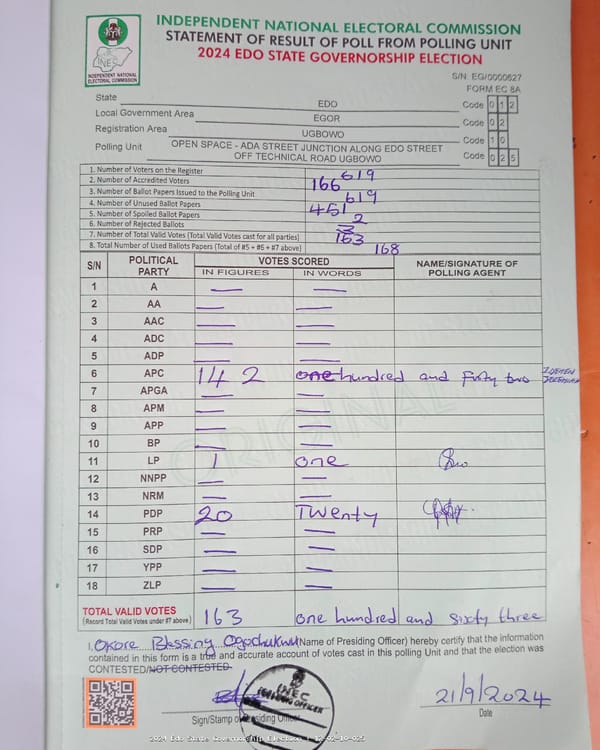 INDEPENDENT NATIONAL ELECTORAL COMMISSION
STATEMENT OF RESULT OF POLL FROM POLLING UNIT
2024 EDO STATE GOVERNORSHIP ELECTION
INEC
INDEPENDENT NATIONAL
ELECTORAL COMMISSION
S/N EG/0000627
FORM EC 8A
State EDO Code 0 1 2
Local Government Area EGOR Code 0 2
Registration Area UGBOWO Code 1 0
Polling Unit OPEN SPACE - ADA STREET JUNCTION ALONG EDO STREET OFF TECHNICAL ROAD UGBOWO Code 0 2 5
1. Number of Voters on the Register 619
2. Number of Accredited Voters 166
3. Number of Ballot Papers Issued to the Polling Unit 619
4. Number of Unused Ballot Papers 451
5. Number of Spoiled Ballot Papers 2
6. Number of Rejected Ballots 3
7. Number of Total Valid Votes (Total Valid Votes cast for all parties) 163
8. Total Number of Used Ballots Papers (Total of #5 + #6 + #7 above) 168
S/N POLITICAL PARTY VOTES SCORED NAME/SIGNATURE OF POLLING AGENT
IN FIGURES IN WORDS
1 A — —
2 AA — —
3 AAC — —
4 ADC — —
5 ADP — —
6 APC 142 one hundred and forty two
7 APGA — —
8 APM — —
9 APP — —
10 BP — —
11 LP 1 one
12 NNPP — —
13 NRM — —
14 PDP 20 Twenty
15 PRP — —
16 SDP — —
17 YPP — —
18 ZLP — —
TOTAL VALID VOTES 163 one hundred and sixty three
(Record Total Valid Votes under #7 above)
I, Okore Blessing Ogochukwu (Name of Presiding Officer) hereby certify that the information
contained in this form is a true and accurate account of votes cast in this polling Unit and that the election was
CONTESTED/NOT CONTESTED.
INEC
PRESIDING OFFICER
21/9/2024
Sign/Stamp of Presiding Officer
Date
2024 Edo State Governorship Election - 12-02-10-025
ORIGINAL